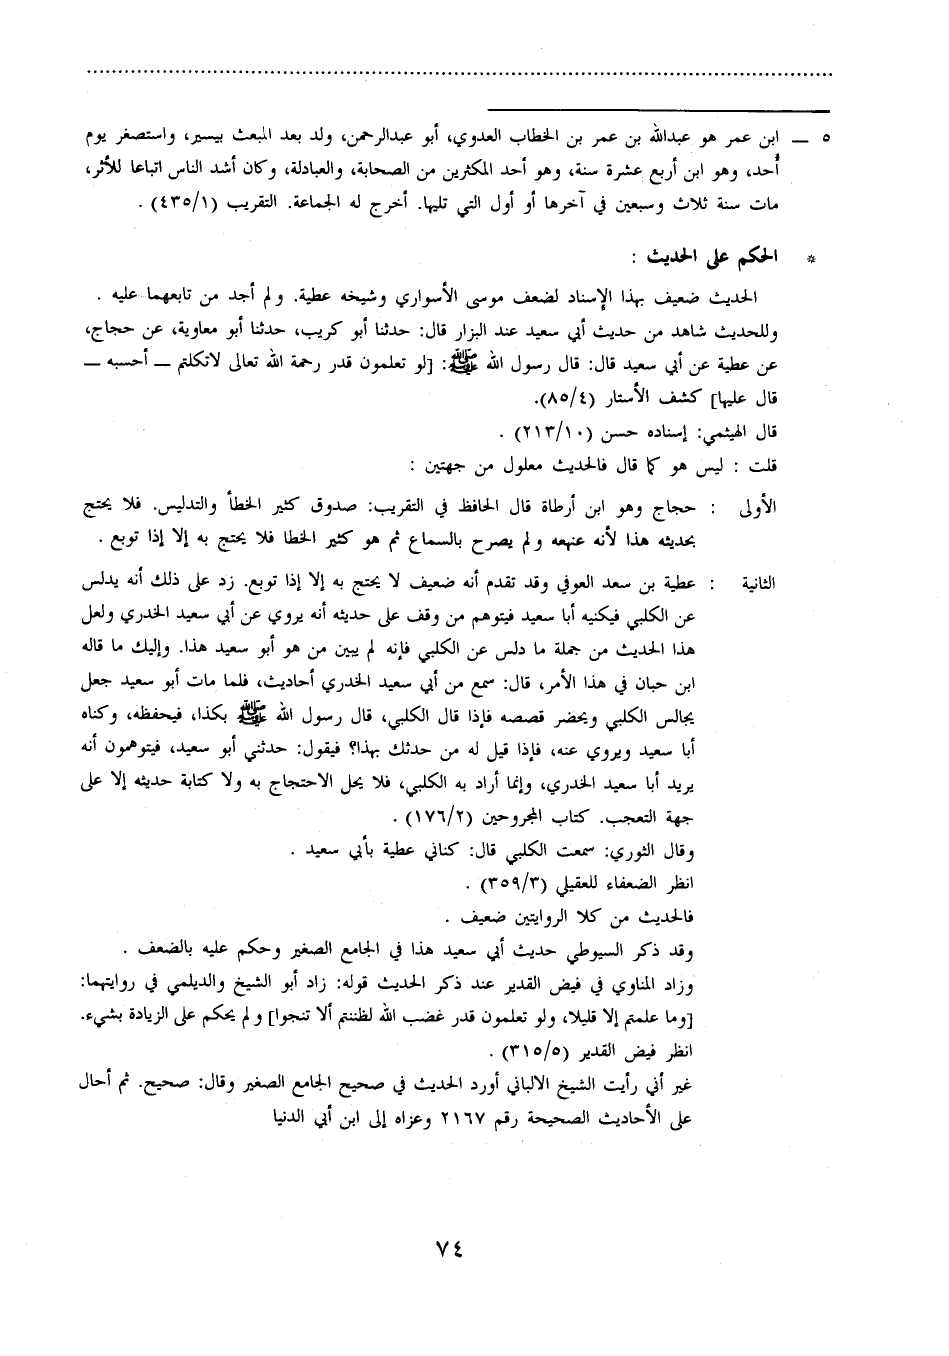 ٥ — ابن عمر هو عبدالله بن عمر بن الخطاب العدوي، أبو عبدالرحمن، ولد بعد المبعث بيسير، واستصغر يوم
أُحد، وهو ابن أربع عشرة سنة، وهو أحد المكثرين من الصحابة، والعبادلة، وكان أشد الناس اتباعا للأثر،
مات سنة ثلاث وسبعين في آخرها أو أول التي تليها. أخرج له الجماعة. التقريب (٤٣٥/١) .
* الحكم على الحديث :
الحديث ضعيف بهذا الإسناد لضعف موسى الأسواري وشيخه عطية. ولم أجد من تابعهما عليه .
وللحديث شاهد من حديث أبي سعيد عند البزار قال: حدثنا أبو كريب، حدثنا أبو معاوية، عن حجاج،
عن عطية عن أبي سعيد قال: قال رسول الله ﷺ: [لو تعلمون قدر رحمة الله تعالى لاتكلتم — أحسبه —
قال عليها] كشف الأستار (٨٥/٤).
قال الهيثمي: إسناده حسن (٢١٣/١٠) .
قلت : ليس هو كما قال فالحديث معلول من جهتين :
الأولى : حجاج وهو ابن أرطاة قال الحافظ في التقريب: صدوق كثير الخطأ والتدليس. فلا يحتج
بحديثه هذا لأنه عنعنه ولم يصرح بالسماع ثم هو كثير الخطا فلا يحتج به إلا إذا توبع .
الثانية : عطية بن سعد العوفي وقد تقدم أنه ضعيف لا يحتج به إلا إذا توبع. زد على ذلك أنه يدلس
عن الكلبي فيكنيه أبا سعيد فيتوهم من وقف على حديثه أنه يروي عن أبي سعيد الخدري ولعل
هذا الحديث من جملة ما دلس عن الكلبي فإنه لم يبين من هو أبو سعيد هذا. وإليك ما قاله
ابن حبان في هذا الأمر، قال: سمع من أبي سعيد الخدري أحاديث، فلما مات أبو سعيد جعل
يجالس الكلبي ويحضر قصصه فإذا قال الكلبي، قال رسول الله ﷺ بكذا، فيحفظه، وكناه
أبا سعيد ويروي عنه، فإذا قيل له من حدثك بهذا؟ فيقول: حدثني أبو سعيد، فيتوهمون أنه
يريد أبا سعيد الخدري، وإنما أراد به الكلبي، فلا يحل الاحتجاج به ولا كتابة حديثه إلا على
جهة التعجب. كتاب المجروحين (١٧٦/٢) .
وقال الثوري: سمعت الكلبي قال: كناني عطية بأبي سعيد .
انظر الضعفاء للعقيلي (٣٥٩/٣) .
فالحديث من كلا الروايتين ضعيف .
وقد ذكر السيوطي حديث أبي سعيد هذا في الجامع الصغير وحكم عليه بالضعف .
وزاد المناوي في فيض القدير عند ذكر الحديث قوله: زاد أبو الشيخ والديلمي في روايتهما:
[وما علمتم إلا قليلا، ولو تعلمون قدر غضب الله لظننتم ألا تنجوا] ولم يحكم على الزيادة بشيء.
انظر فيض القدير (٣١٥/٥) .
غير أني رأيت الشيخ الالباني أورد الحديث في صحيح الجامع الصغير وقال: صحيح. ثم أحال
على الأحاديث الصحيحة رقم ٢١٦٧ وعزاه إلى ابن أبي الدنيا
٧٤